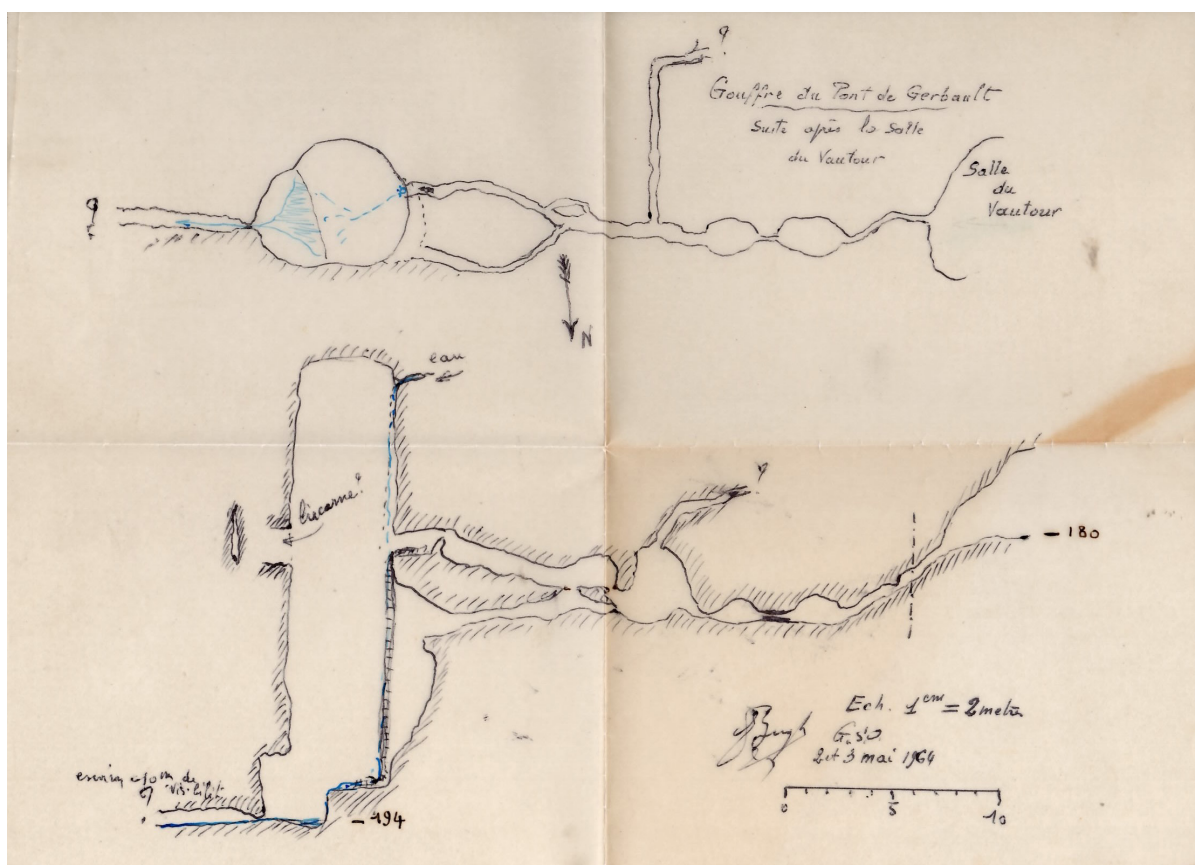 ?
Gouffre du Pont de Gerbault
Suite après la Salle
du Vautour
Salle
du
Vautour
?
N
eau
Lucarne?
?
- 180
Ech. 1 cm = 2 metre
2 et 3 mai 1964
environ 10m de
visibilité
?
- 194
0 5 10